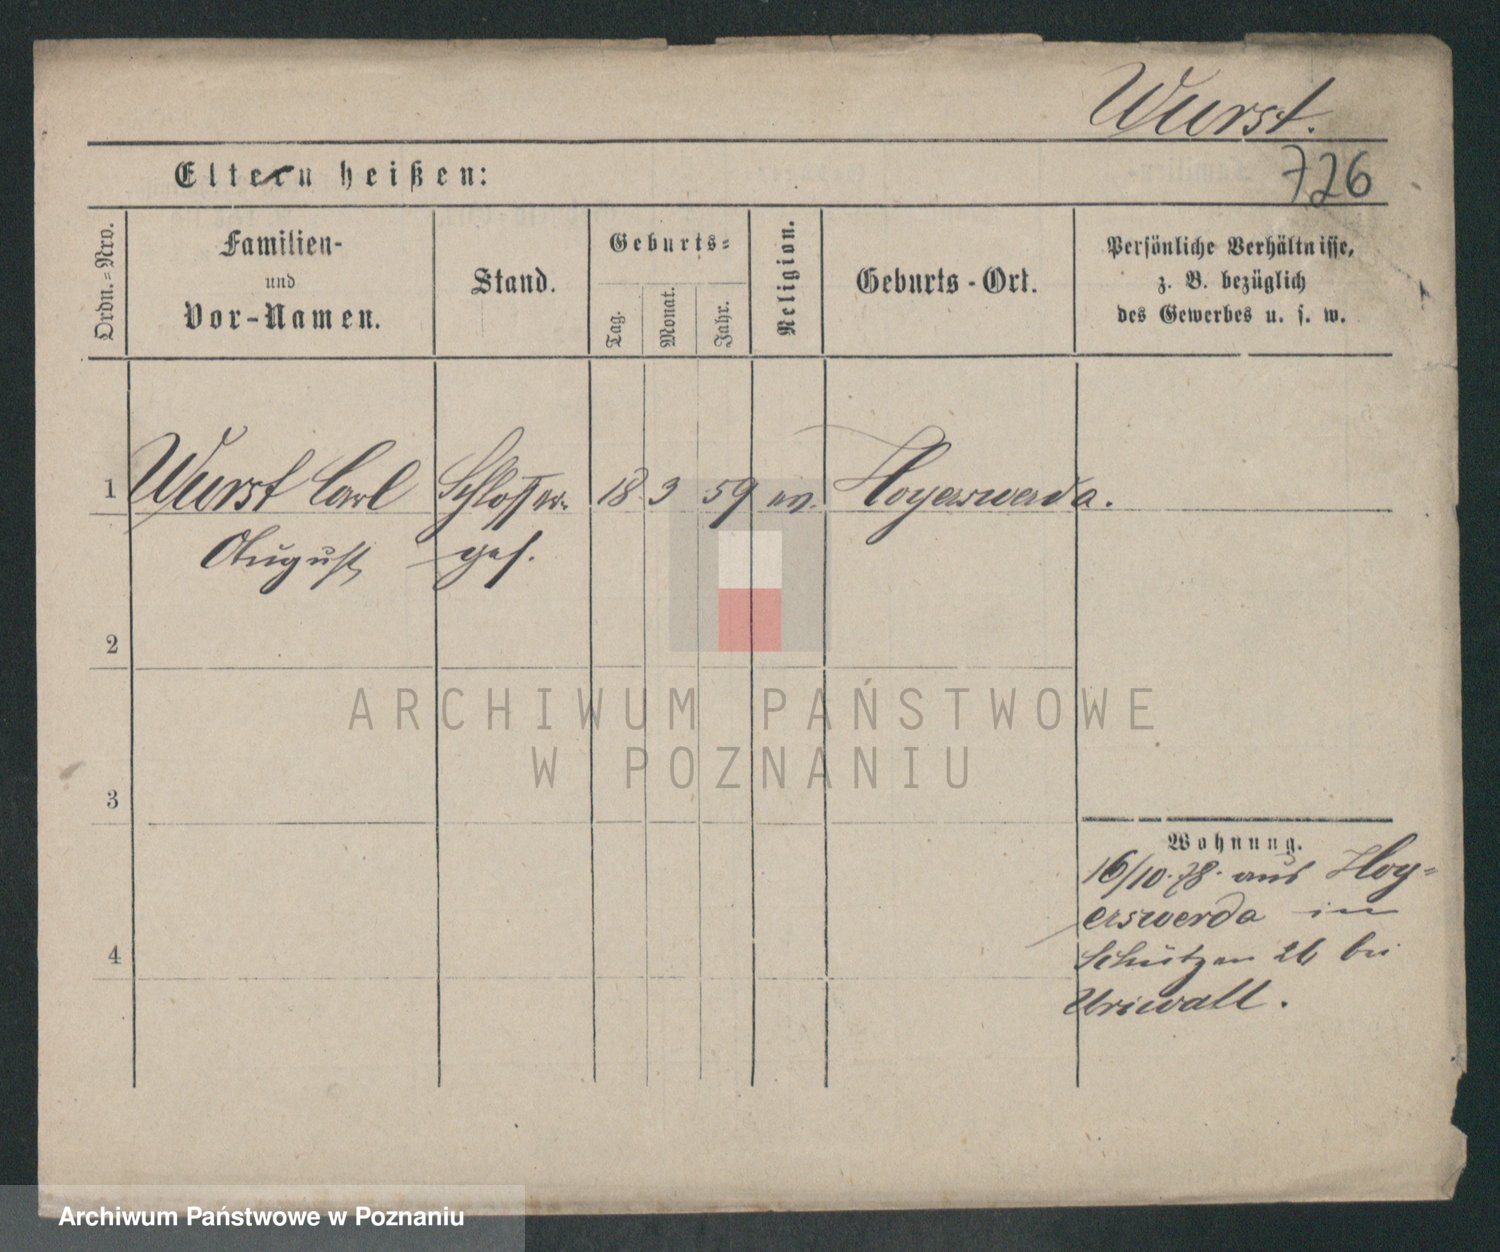 Wurst.
726
Eltern heißen:
Ordn.-Nro.
Familien-
und
Vor-Namen.
Stand.
Geburts-
Tag.
Monat.
Jahr.
Religion.
Geburts-Ort.
Persönliche Verhältnisse,
z. B. bezüglich
des Gewerbes u. s. w.
1 Wurst Carl Schlosser- 18 3 59 ev. Hoyerswerda.
August ges.
2
3
4
Wohnung.
16/10.78. aus Hoy-
erswerda in
Schützen 26 bei
Uriwall.
ARCHIWUM PAŃSTWOWE
W POZNANIU
Archiwum Państwowe w Poznaniu